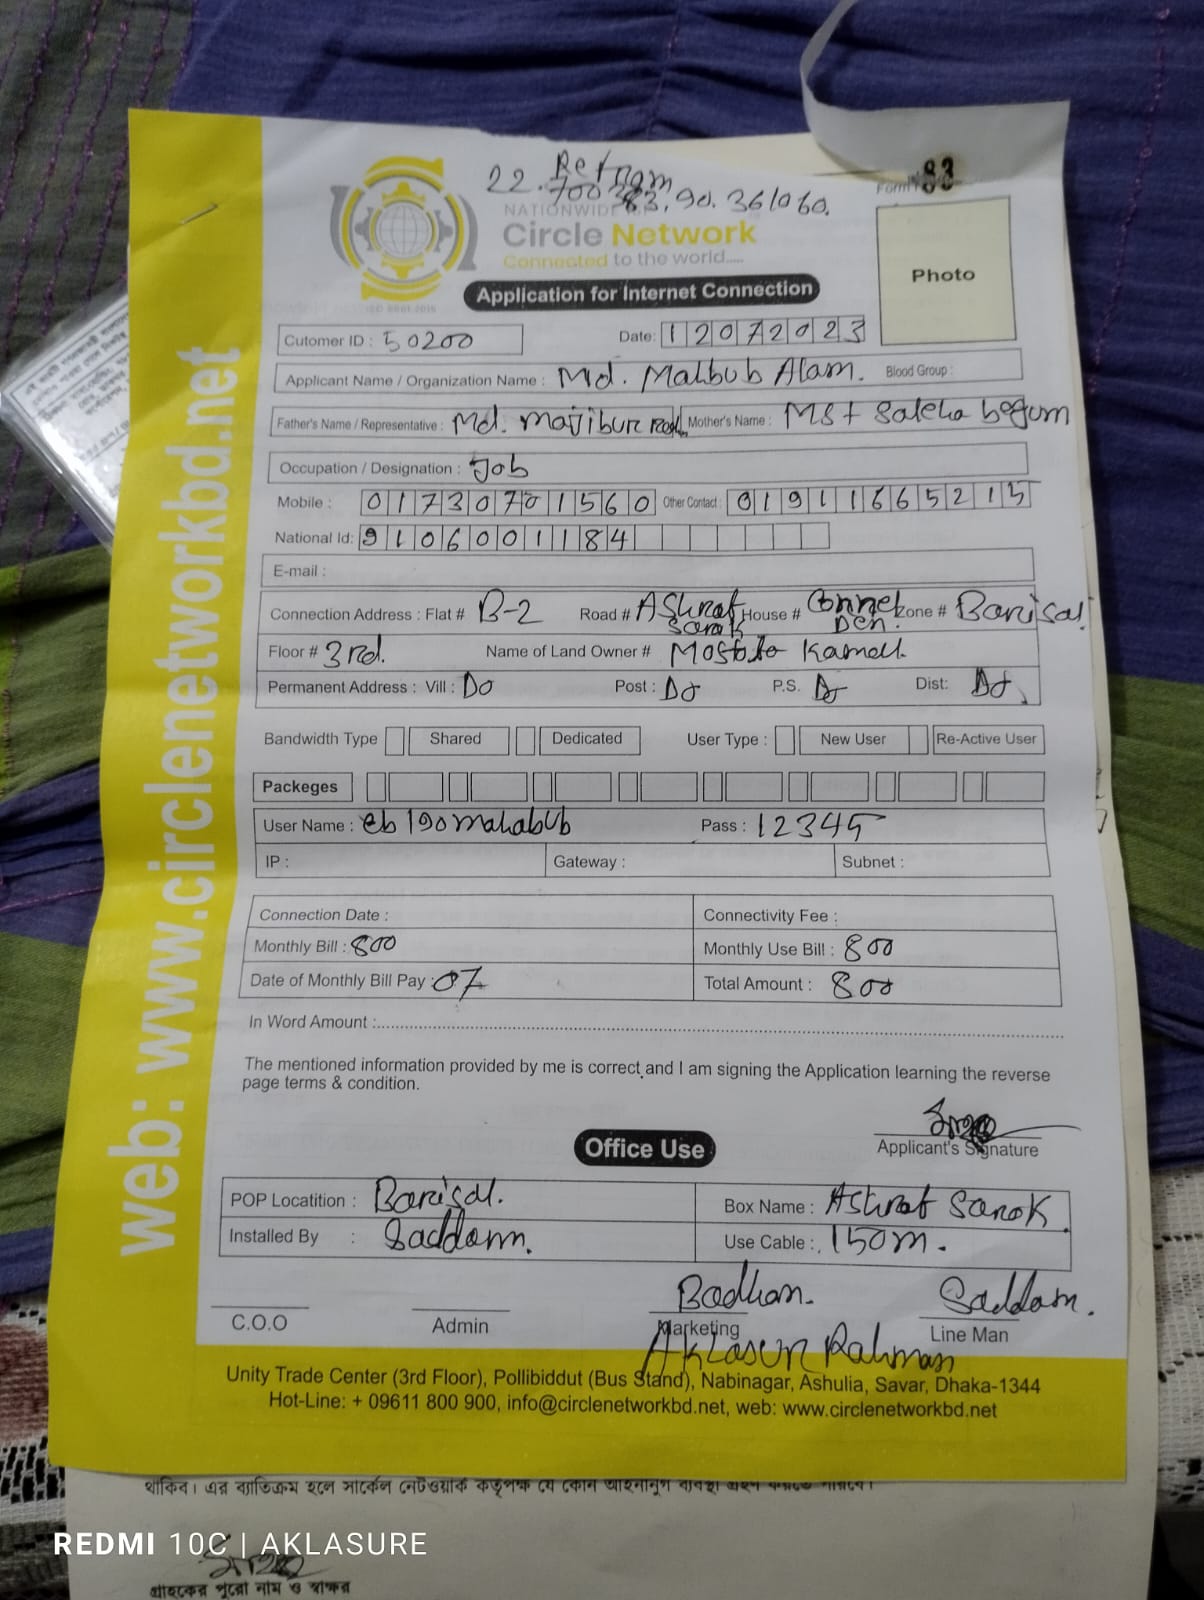 22.
Form 83
NATIONWIDE
Circle Network
Connected to the world.....
Photo
Application for Internet Connection
Cutomer ID : 50200 Date: 12072023
Applicant Name / Organization Name : Md. Mahbub Alam. Blood Group :
Father's Name / Representative : Md. Majibur Mother's Name : MSt Saleha begum
Occupation / Designation : Job
Mobile : 01730701560 Other Contact : 01911665215
National Id: 9106001184
E-mail :
Connection Address : Flat # B-2 Road # Ashraf Sarok House # Zone # Barisal
Floor # 3rd. Name of Land Owner # Mostofa Kamal.
Permanent Address : Vill : Do Post : Do P.S. Do Dist: Do
Bandwidth Type Shared Dedicated User Type : New User Re-Active User
Packeges
User Name : cb190mahabub Pass : 12345
IP : Gateway : Subnet :
Connection Date : Connectivity Fee :
Monthly Bill : 800 Monthly Use Bill : 800
Date of Monthly Bill Pay : 07 Total Amount : 800
In Word Amount :
The mentioned information provided by me is correct and I am signing the Application learning the reverse
page terms & condition.
Applicant's Signature
Office Use
POP Locatition : Barisal. Box Name : Ashraf Sarok.
Installed By : Saddam. Use Cable : 150m.
Badhan. Saddam.
C.O.O Admin Marketing Line Man
Aklasur Rahman
Unity Trade Center (3rd Floor), Pollibiddut (Bus Stand), Nabinagar, Ashulia, Savar, Dhaka-1344
Hot-Line: + 09611 800 900, info@circlenetworkbd.net, web: www.circlenetworkbd.net
web: www.circlenetworkbd.net
থাকিব। এর ব্যতিক্রম হলে সার্কেল নেটওয়ার্ক কর্তৃপক্ষ যে কোন আইনানুগ ব্যবস্থা গ্রহণ করতে পারবে।
REDMI 10C | AKLASURE
গ্রাহকের পুরো নাম ও স্বাক্ষর